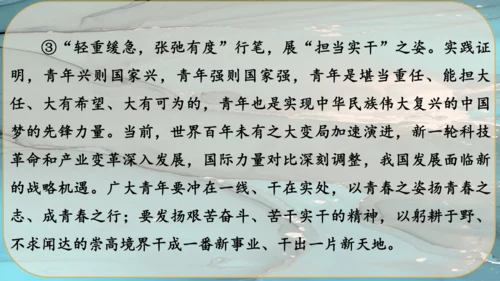 ③“轻重缓急，张弛有度”行笔，展“担当实干”之姿。实践证
明，青年兴则国家兴，青年强则国家强，青年是堪当重任、能担大
任、大有希望、大有可为的，青年也是实现中华民族伟大复兴的中国
梦的先锋力量。当前，世界百年未有之大变局加速演进，新一轮科技
革命和产业变革深入发展，国际力量对比深刻调整，我国发展面临新
的战略机遇。广大青年要冲在一线、干在实处，以青春之姿扬青春之
志、成青春之行；要发扬艰苦奋斗、苦干实干的精神，以躬耕于野、
不求闻达的崇高境界干成一番新事业、干出一片新天地。